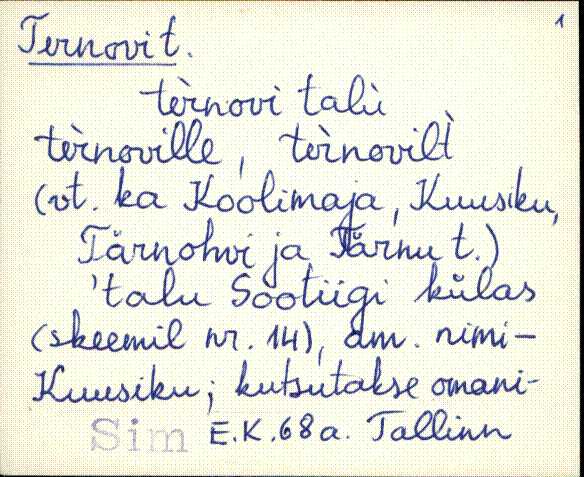 1
Ternovi t.
tèrnovi talù
tèrnoville, tèrnovilt̀
(vt. ka Koolimaja, Kuusiku,
Tärnohvi ja Tärnu t.)
'talu Sootiigi külas
(skeemil nr. 14), am. nimi-
Kuusiku; kutsutakse omani-
Sim E.K.68a. Tallinn